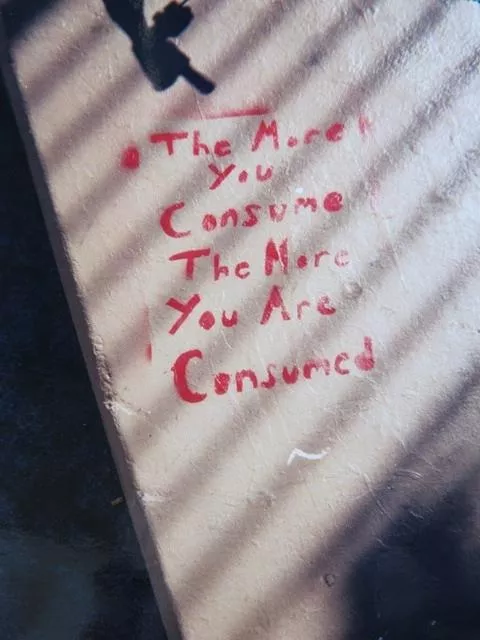 The More
You
Consume
The More
You Are
Consumed